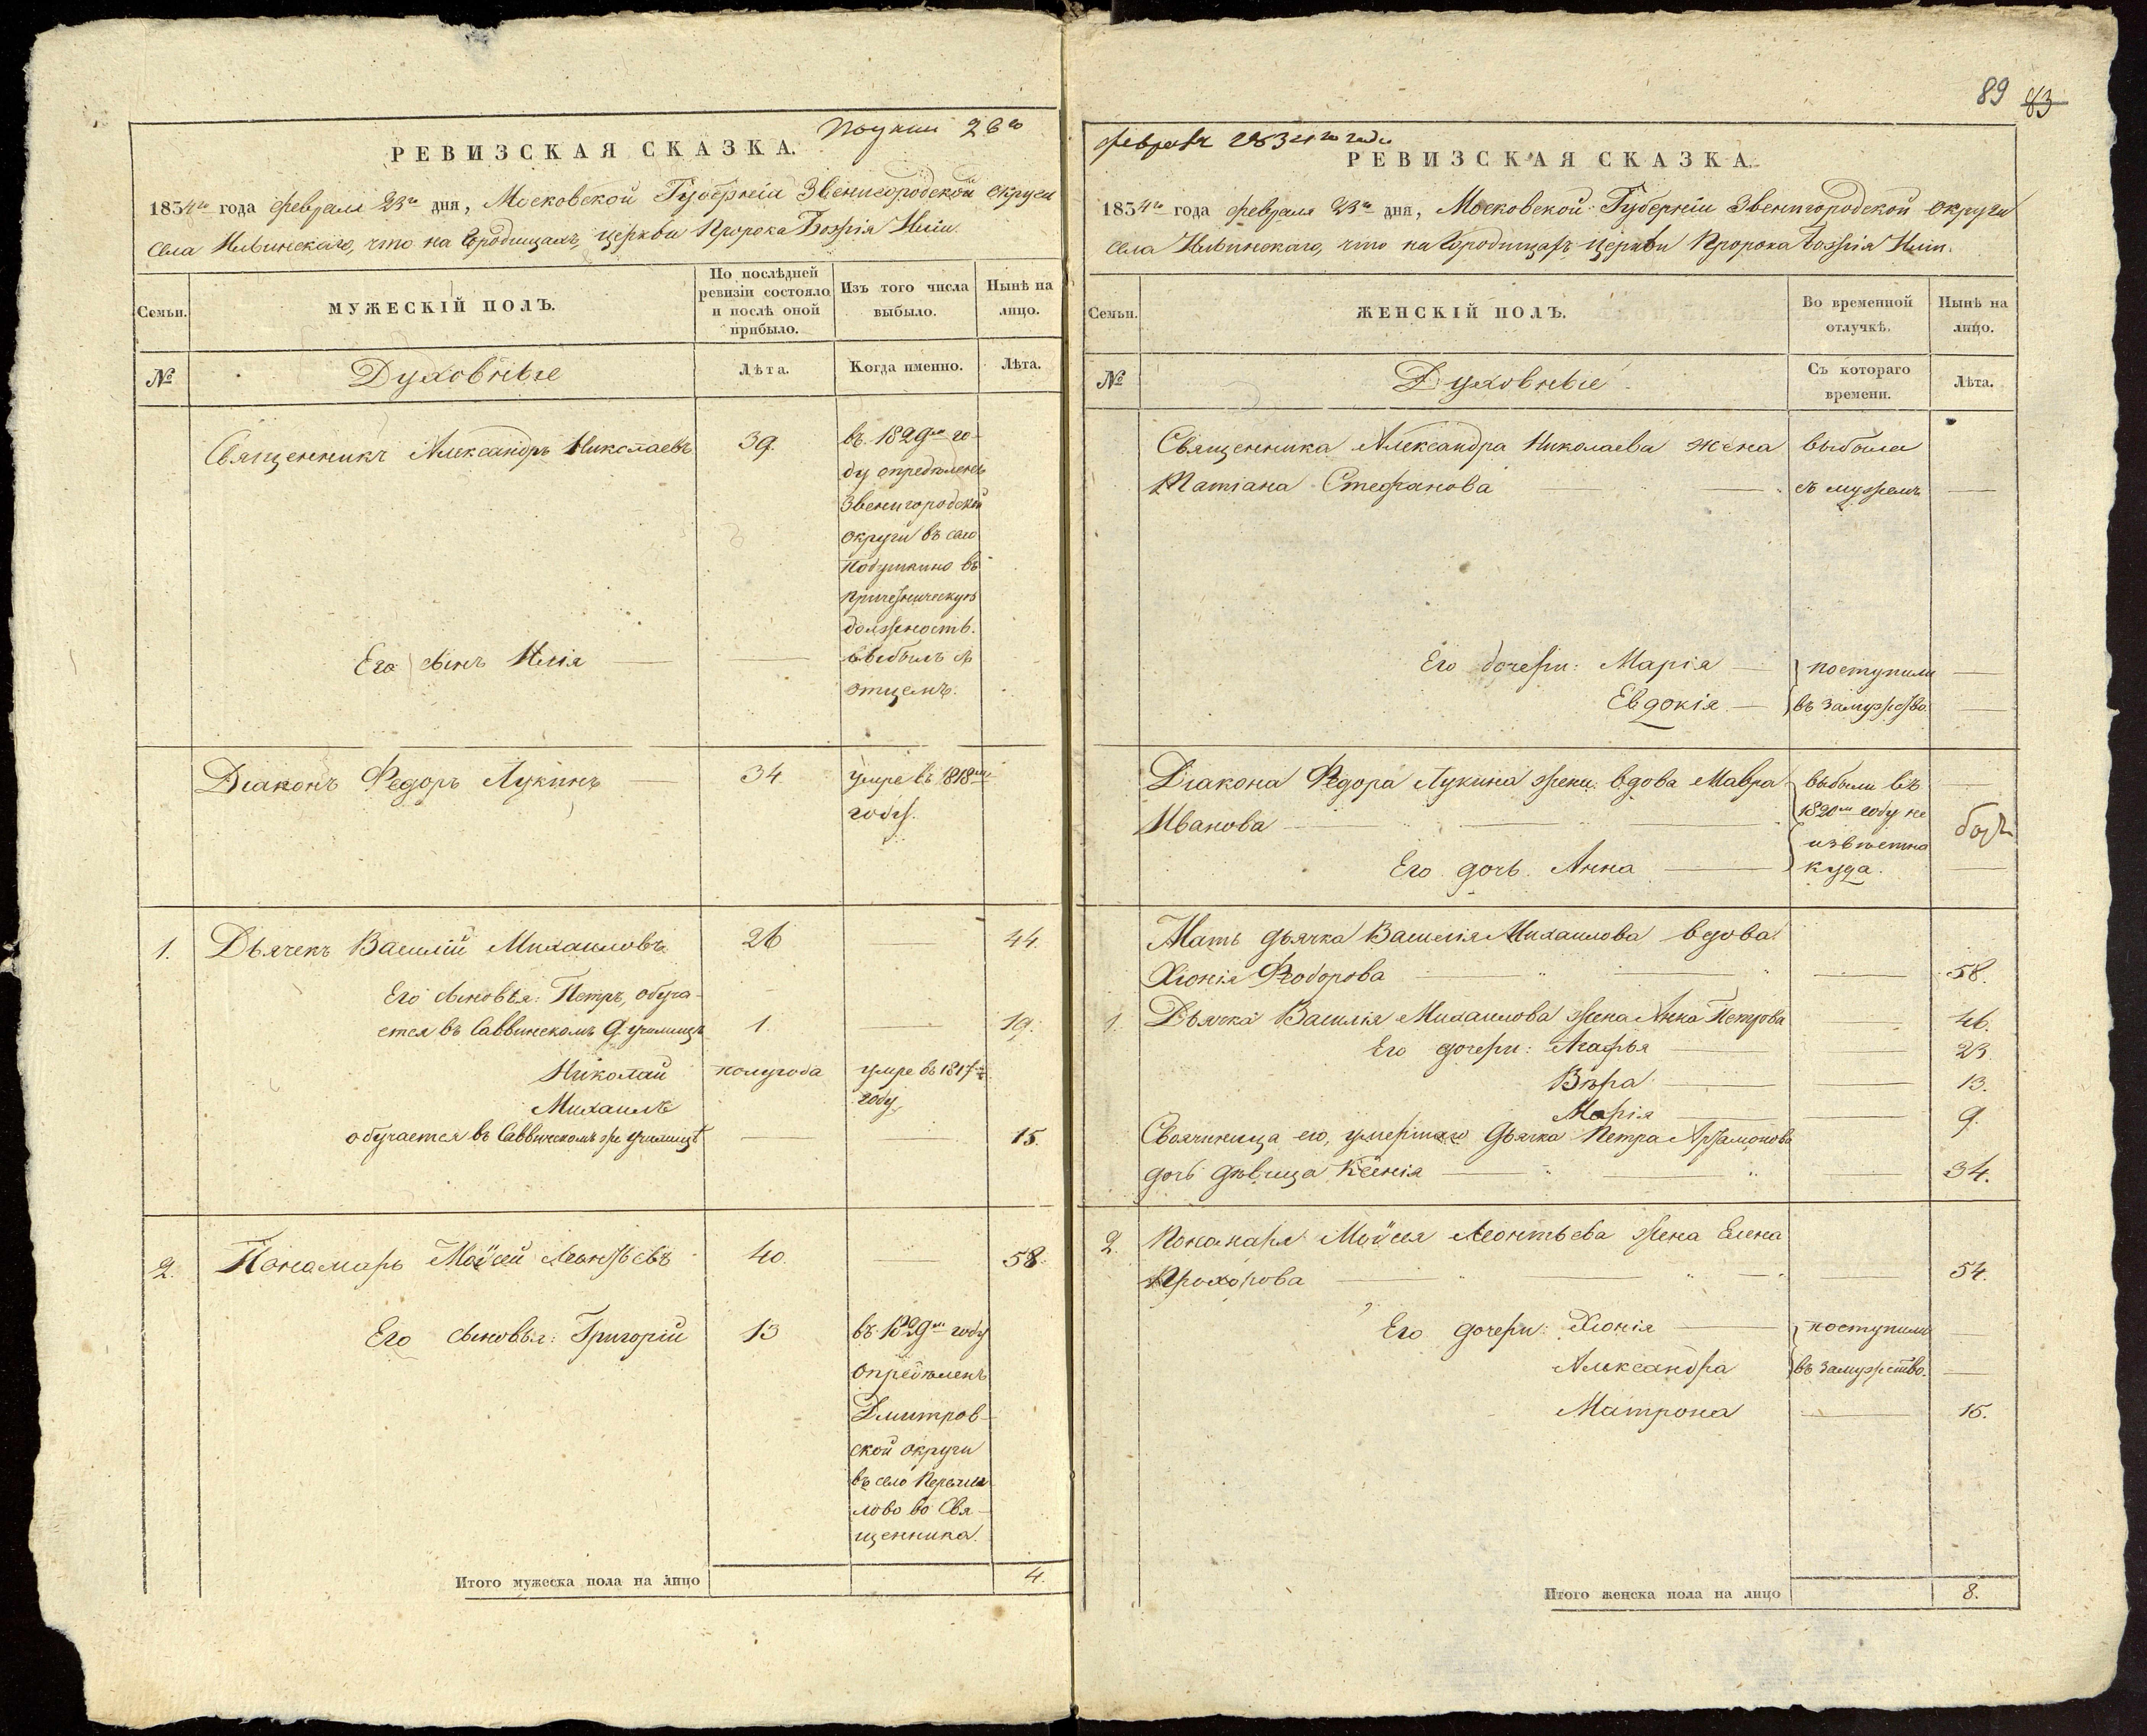 Получ 26го
РЕВИЗСКАЯ СКАЗКА.
1834го года февраля 23го дня, Московской Губерніи Звенигородской округи
села Ильинскаго, что на Городищахъ, церкви Пророка Божія Иліи.
Семьи.
МУЖЕСКІЙ ПОЛЪ.
По послѣдней
ревизіи состояло
и послѣ оной
прибыло.
Изъ того числа
выбыло.
Нынѣ на
лицо.
№
Духовные
Лѣта.
Когда именно.
Лѣта.
Священникъ Александръ Николаевъ 39. въ 1829мъ го-
ду опредѣленъ
Звенигородской
округи въ село
Подушкино въ
причетническую
должность.
Его сынъ Илія — — выбылъ съ
отцемъ.
Діаконъ Федоръ Лукинъ — 34. умре въ 1818мъ
году.
1. Дьячекъ Василій Михаиловъ 26 44.
Его сыновья: Петръ, обуча-
ется въ Саввинскомъ д. училищѣ 1. — 19.
Николай полугода умре въ 1817мъ
Михаилъ году
обучается въ Саввинскомъ же училищѣ — — 15.
2. Пономарь Моѷсей Леонтьевъ 40. — 58.
Его сыновья: Григорій 13 въ 1829мъ году
опредѣленъ
Дмитров-
ской округи
въ село Переми-
лово во Свя-
щенника.
Итого мужеска пола на лицо 4.
89 83
февраля 1834го года
РЕВИЗСКАЯ СКАЗКА.
1834го года февраля 23го дня, Московской Губерніи Звенигородской округи
села Ильинскаго, что на Городищахъ церкви Пророка Божія Иліи.
Семьи.
ЖЕНСКІЙ ПОЛЪ.
Во временной
отлучкѣ.
Нынѣ на
лицо.
№
Духовные
Съ котораго
времени.
Лѣта.
Священника Александра Николаева жена выбыла
Татіана Стефанова — съ мужемъ —
Его дочери: Марія — поступили —
Евдокія — въ замужство. —
Діакона Федора Лукина жена вдова Мавра выбыли въ —
Иванова — 1820мъ году не
извѣстно
Его дочь Анна — куда. —
Мать дьячка Василія Михаилова вдова
Хіонія Федорова — — 58.
1. Дьячка Василія Михаилова жена Анна Петрова — 46.
Его дочери: Агафья — — 23.
Вѣра — — 13.
Марія — — 9.
Своячиница его, умершаго дьячка Петра Артамонова
дочь дѣвица Ксенія — — 34.
2. Пономаря Моѷсея Леонтьева жена Елена
Прохорова — — 54.
Его дочери: Хіонія — поступили —
Александра въ замужство. —
Матрона — 15.
Итого женска пола на лицо 8.